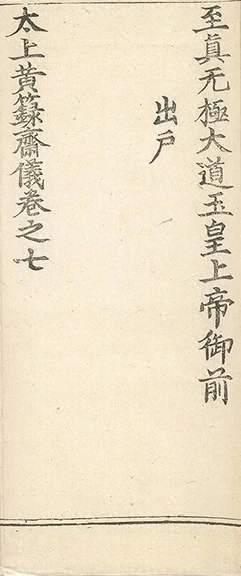 至真无極大道玉皇上帝御前
出戸
太上黄籙齋儀卷之七